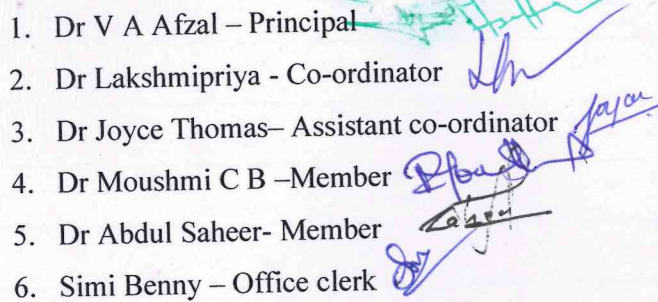 1. Dr V A Afzal – Principal
2. Dr Lakshmipriya - Co-ordinator
3. Dr Joyce Thomas– Assistant co-ordinator
4. Dr Moushmi C B –Member
5. Dr Abdul Saheer- Member
6. Simi Benny – Office clerk